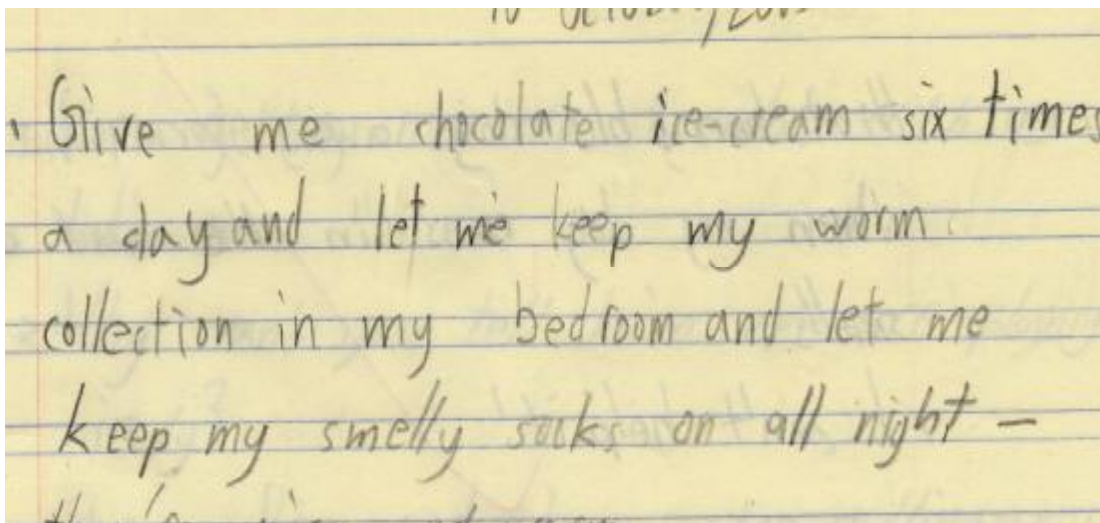 Give me chocolate ice-cream six times
a day and let me keep my worm
collection in my bedroom and let me
keep my smelly socks on all night –